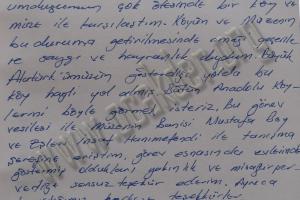 umduğumun çok ötesinde bir köy ve
müze ile karşılaştım. Köyün ve Müzenin
bu duruma getirilmesinde emeği geçenlere
saygı ve hayranlık duydum. Büyük
Atatürk'ümüzün gösterdiği yolda bu
köy hayli yol almış. Bütün Anadolu köy-
lerini böyle görmek isteriz. Bu görev
vesilesi ile müzenin banisi Mustafa Bey
ve eşleri hanımefendi ile tanışma
şerefine eriştim. görev esnasında
göstermiş oldukları yakınlık ve misafirper-
verliğe sonsuz teşekkür ederim. Ayrıca
teşekkürler